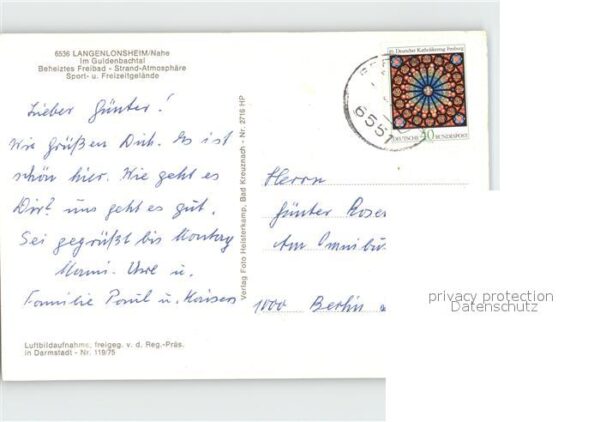 6536 LANGENLONSHEIM/Nahe
Im Guldenbachtal
Beheiztes Freibad - Strand-Atmosphäre
Sport- u. Freizeitgelände
Lieber Günter!
Wir grüßen Dich. Es ist
schön hier. Wie geht es
Dir? uns geht es gut.
Sei gegrüßt bis Montag
Mami. Uwe u.
Familie Paul u.
Luftbildaufnahme, freigeg. v. d. Reg.-Präs.
in Darmstadt - Nr. 119/75
Verlag Foto Holsterkamp, Bad Kreuznach - Nr. 2716 HP
85. Deutscher Katholikentag Freiburg
DEUTSCHE BUNDESPOST
40
6551
Herrn
Günter Roser
Am Omnibu
1000 Berlin
privacy protection
Datenschutz